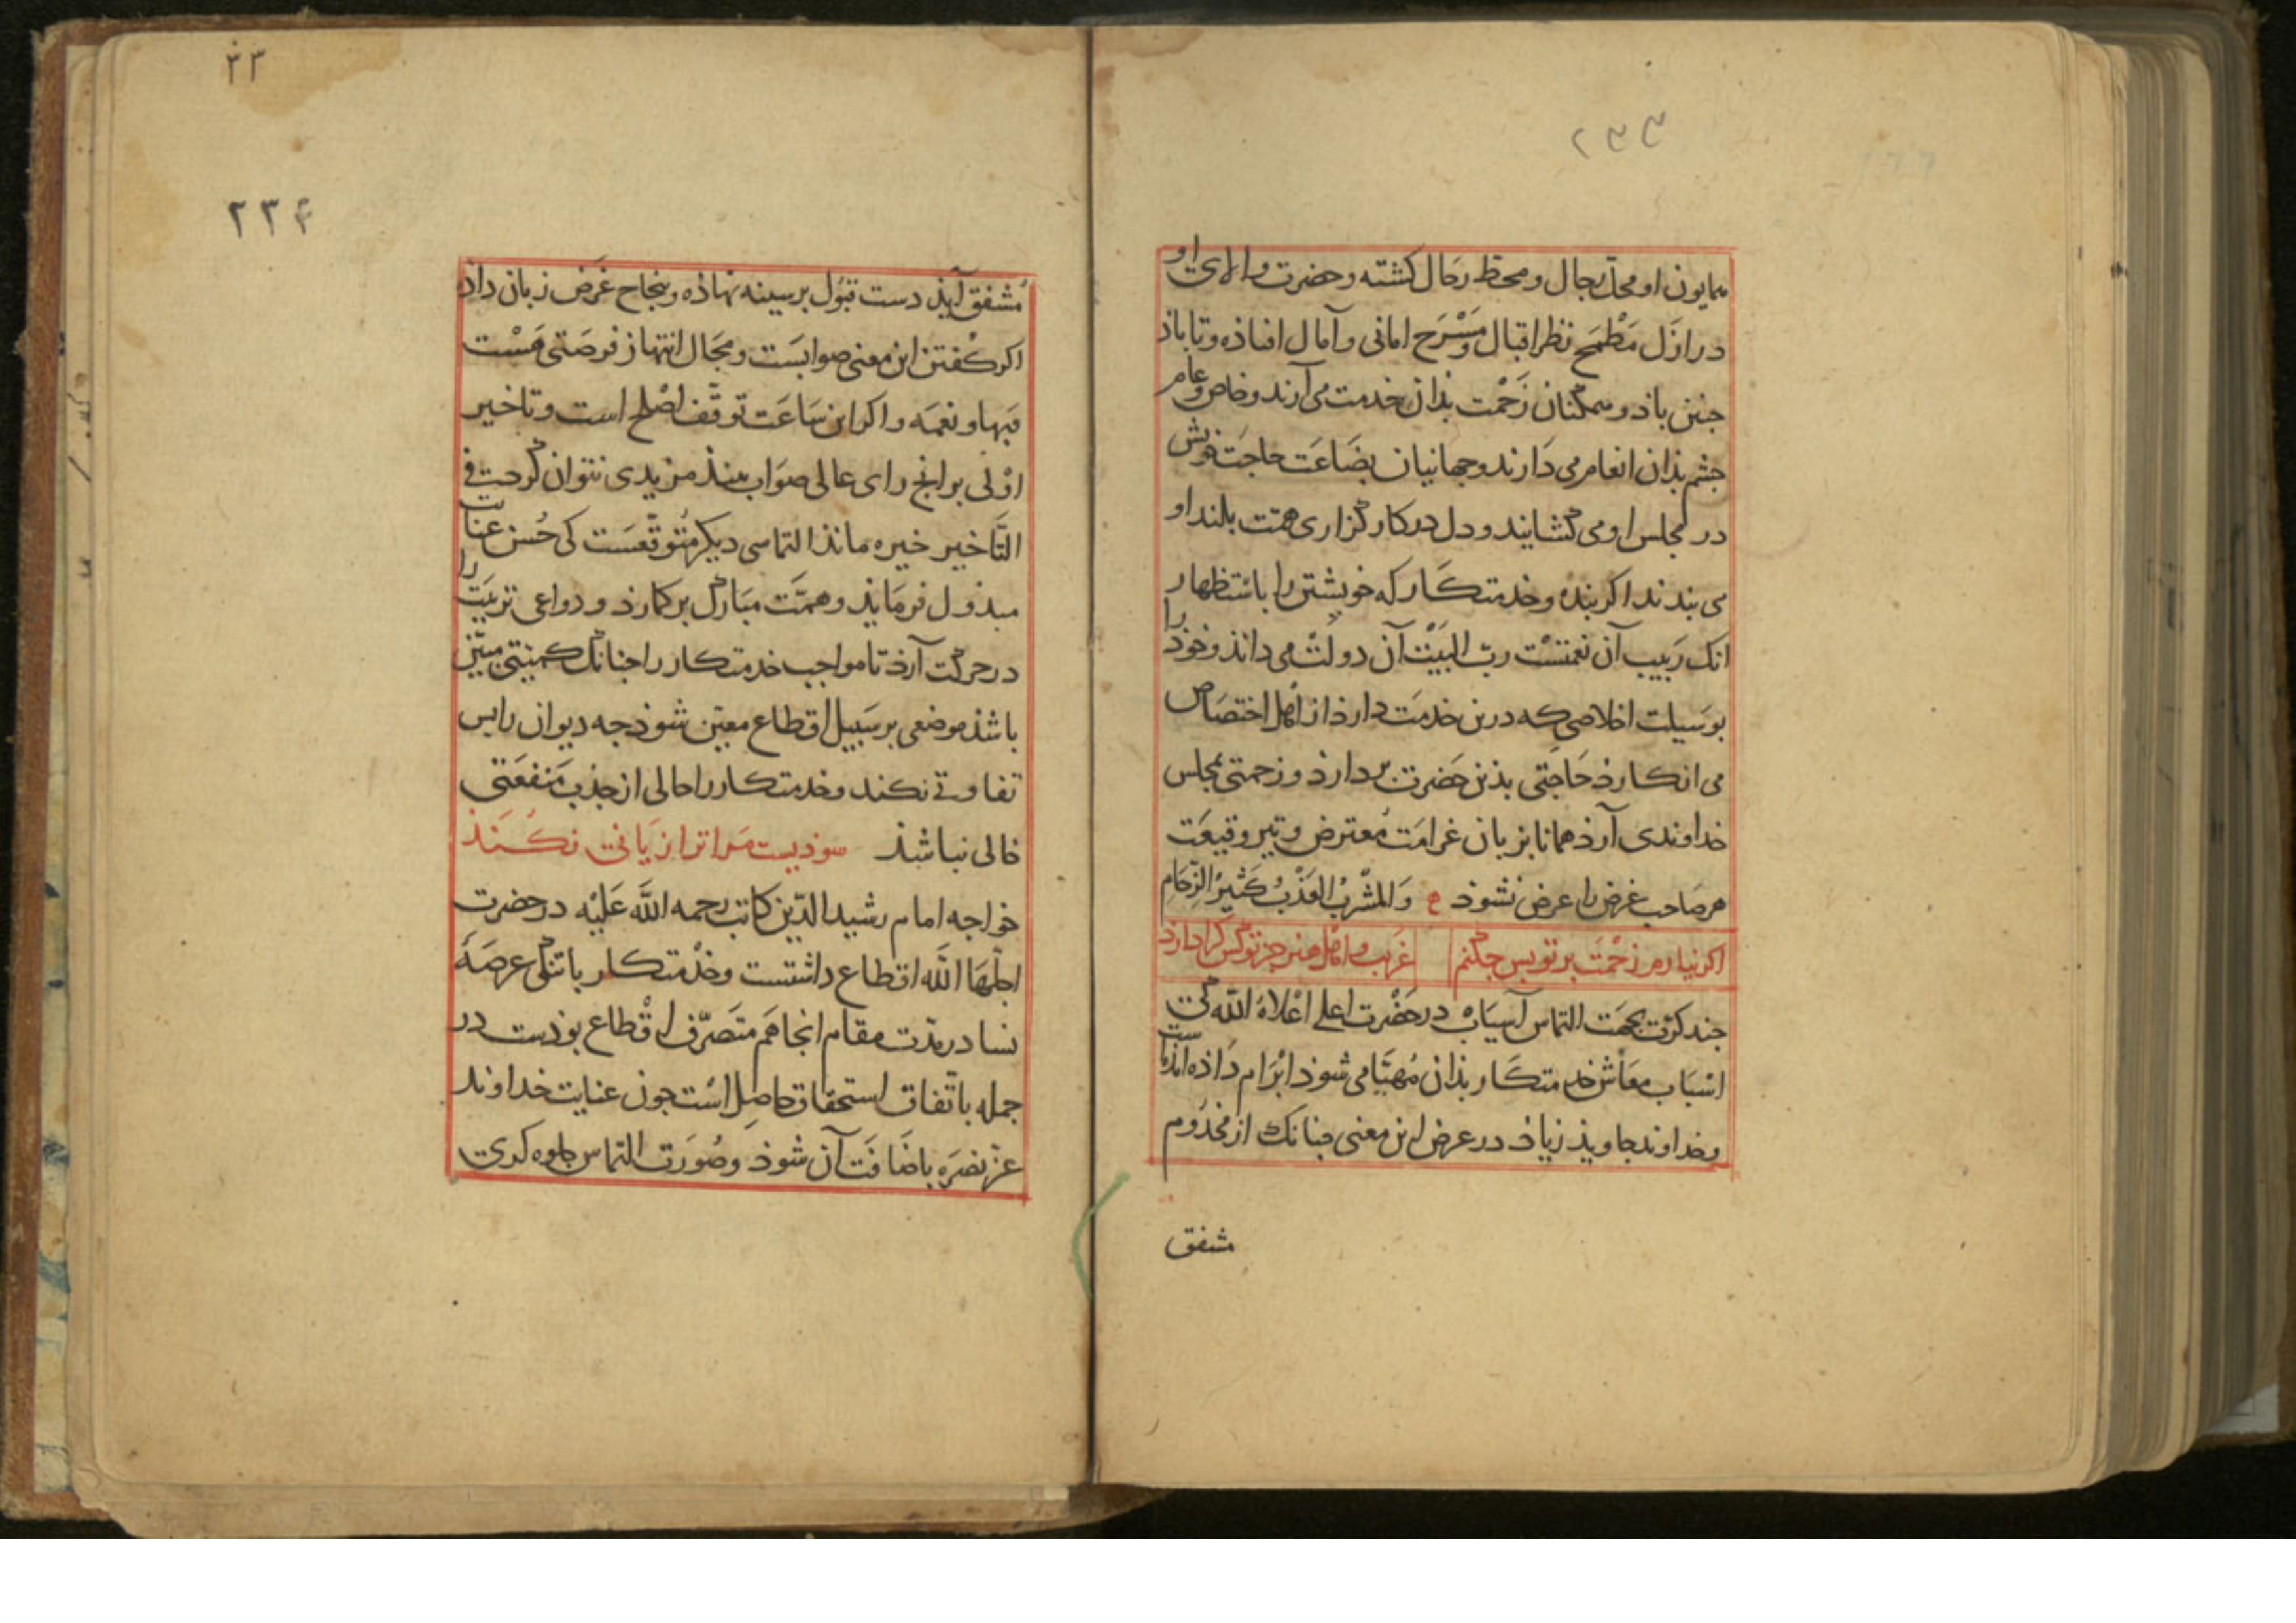 ۲۳۳
همایون او محل رجال و محط رحال کشته و حضرت والای او
در ازل مَطْمَح نظر اقبال و مَسْرَح امانی و آمال افتاذه و تا باذ
جنین باذ و همکنان زَحْمت بذان خدمت می آرند و خاص و عام
جشم بذان انعام می دَارند و جهانیان بضَاعَت حاجَت خویش
در مجلس او می کشایند و دل در کار کزاری همّت بلند او
می بندند اکر بنده و خدمتکَار که خویشتن را باسْتظهار
انک رَبیب آن نعمتسْت ربیب البَیْت آن دولت می داند و خوذ را
بوَسیلت اخلاصی که درین خدمَت دارذ از اهل اختصَاص
می انکارذ حَاجَتی بذین حَضرت بر دارذ و زحمتی بمجلس
خداوندی آرذ همانا بزبان غرامَت مُعترض و تیر وقیعَت
هر صَاحب غرض را عرض نشوذ ع وَالمَشْربُ العَذْبُ کَثیرُ الزِحَامِ
اکر نیارم زحْمَت بر تو بس جکنم غریب و اهل هنر جز تو کس کرا دارذ
جند کرّت بجهَت التماس آسیَاب در حَضْرت اعلی اعْلاهُ اللّه کی
اسْبَاب معَاش خدمتکَار بذان مُهیَّا می شوذ ابْرَام دَاذه امذست
و خداوند جاویذ زیاذ در عرض این معنی جنانک از مخدُوم
مشفق
۳۳
۲۳۴
مُشفق آیذ دست قبُول بر سینه نهاذه و بنجاح غَرَض زبان داذ
اکر کفتن این معنی صوابسَت و مجَال انتهاز فرصَتی هَسْت
فبها و نعمَه و اکر این سَاعَت توقّف اصْلح است و تاخیر
اوْلی بر آنج رای عالی صوَاب بینذ مزیدی نتوان کرد فی
التَّاخیر خیره مانذ التماسی دیکر متوقّعسَت کی حُسن عنایت
مبذول فرمَایذ و همَّت مبَارک بر کمارذ و دواعی تربیَت را
در حرکت آرذ تا مواجب خدمتکار را جنانک کمیتی مبیّن
باشذ موضعی بر سَبیل اقطاع معیّن شوذ جه دیوان را بس
تفاوتی نکند و خدمتکار را حالی از جذب مَنفعَتی
خالی نباشذ سوذیست مَرا ترا زیَانی نکُنذ
خواجه امام رشید الدّین کاتب رحمه اللَّه عَلَیْه در حضرت
اجلّهَا اللَّه اقطاع داشتست و خذْمتکار با تنکی عرصَهٔ
نسا در مدّت مقام انجا هَم متَصَرّف اقْطاع بوذست در
جمله باتّفاق استحقاق حاصل اسْت جون عنایت خداوند
عز نصرَه باضَافَت آن شوذ و صُوَرت التماس جلوه کری